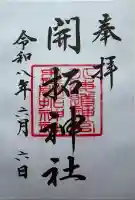 奉拝
開拓神社
令和八年六月六日